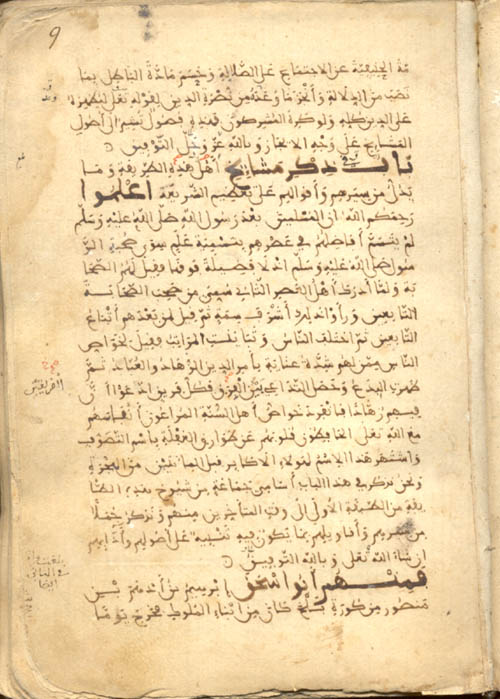 9
مة الحنيفية عن الاجتماع على الضلالة وحسم مادة الباطل بما
نصب من الدلالة وأنجز ما وعده من نصرة الدين لقوله تعلى ليظهره
على الدين كله ولو كره المشركون فهذه فصول تشير إلى أصول
المسايل على وجه الايجاز وبالله عز وجل التوفيق
باب في ذكر مشايخ أهل هذه الطريقة وما
يدل من سيرهم وأقوالهم على تعظيم الشريعة اعلموا
رحمكم الله ان المسلمين بعد رسول الله صلى الله عليه وسلم
لم يتسم أفاضلهم في عصرهم بتسمية علم سوى صحبة الر
سول صلى الله عليه وسلم اذ لا فضيلة فوقها فقيل لهم الصحا
بة ولما أدرك أهل العصر الثاني سمي من صحب الصحابة
التابعين ورأوا ذلك أشرف سمة ثم قيل لمن بعدهم أتباع
التابعين ثم اختلف الناس وتباينت المراتب فقيل لخواص
الناس ممن لهم شدة عناية بأمر الدين الزهاد والعباد ثم
ظهرت البدع وحصل التداعي بين الفرق فكل فريق ادعوا أن
فيهم زهادا فانفرد خواص أهل السنة المراعون أنفاسهم
مع الله تعلى الحافظون قلوبهم عن طوارق الغفلة باسم التصوف
واشتهر هذا الاسم لهؤلاء الاكابر قبل المايتين من الهجرة
ونحن نذكر في هذا الباب أسامي جماعة من شيوخ هذه الطر
يقة من الطبقة الأولى الى وقت المتأخرين منهم ونذكر جملا
من سيرهم وأقاويلهم بما يكون فيه تنبيه على أصولهم وآدابهم
ان شاء الله تعلى وبالله التوفيق
فمنهم أبو اسحق إبرهيم بن أدهم بن
منصور من كورة بلخ كان من أبناء الملوك فخرج يوما